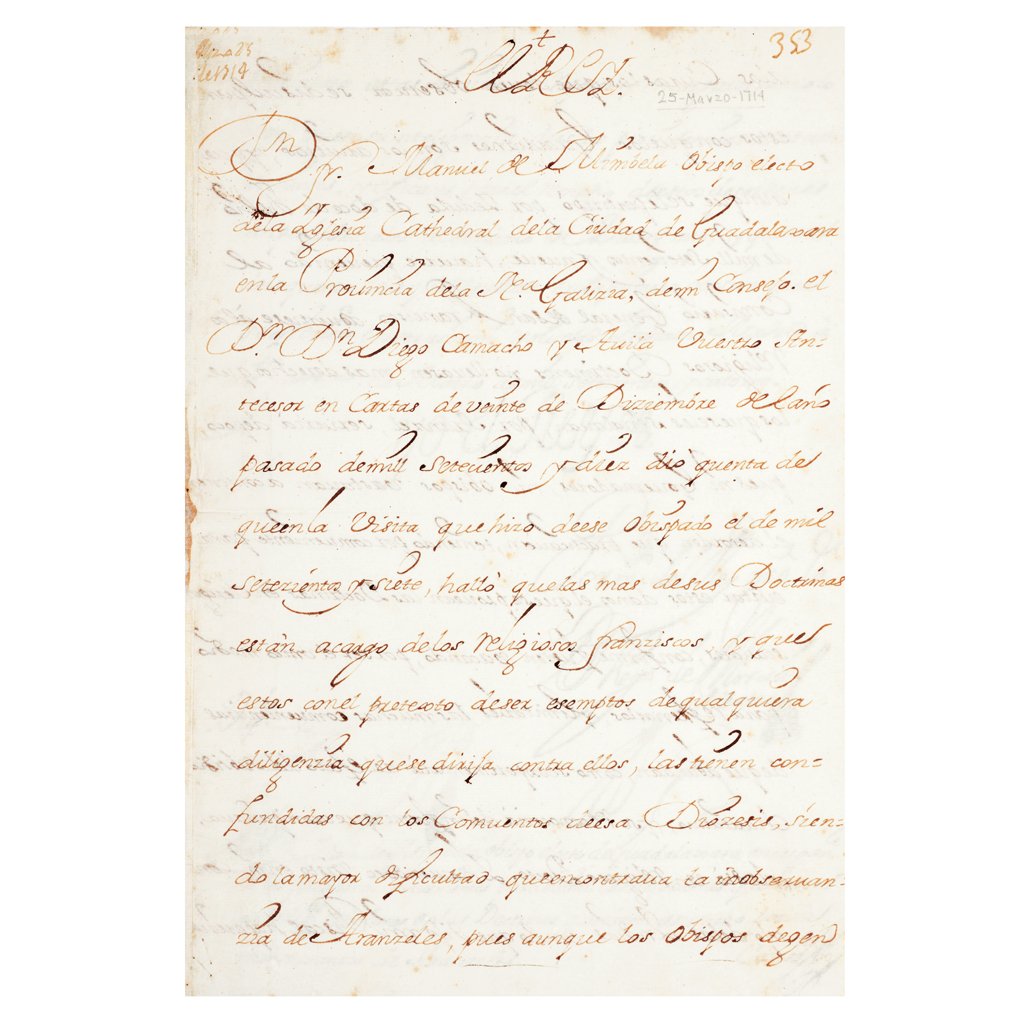 353
Marzo 25
de 1714
+
El Rey.
25-Marzo-1714
Dn
Fr. Manuel de Mimbela Obispo electo
dela Yglesia Cathedral dela Ciudad de Guadalaxara
enla Prouincia dela Na. Galizia, demi Consejo. el
Dr. Dn Diego Camacho y Auila Vuestro An-
tecesor en Cartas de veinte de Diziembre del año
pasado demill setecientos y diez dio quenta de
queenla Visita que hizo deese Obispado el de mil
setezientos y siete, hallò quelas mas desus Doctrinas
estàn acargo delos religiosos franziscos y que
estos conel pretexto deser esemptos dequalquiera
diligenzia quese dirija contra ellos, las tienen con=
fundidas con los Comuentos deesa Diozesis, sien-
do lamayor dificultad queencontraua la inobseruan-
zia de Aranzeles, pues aunque los Obispos degen